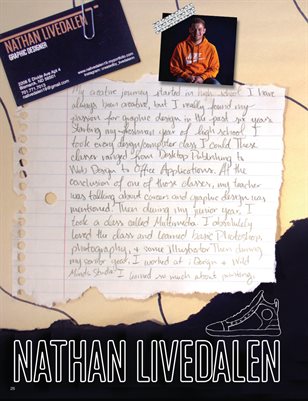 NATHAN LIVEDALEN
GRAPHIC DESIGNER
Bismarck, ND 58501
My creative journey started in high school. I have
always been creative, but I really found my
passion for graphic design in the past six years.
Starting my freshman year of high school, I
took every design/computer class I could. These
classes ranged from Desktop Publishing to
Web Design to Office Applications. At the
conclusion of one of those classes, my teacher
was talking about careers and graphic design was
mentioned. Then during my junior year, I
took a class called Multimedia. I absolutely
loved the class and learned basic Photoshop,
photography, + some Illustrator. Then during
my senior year, I worked at
I learned so much about printing,
NATHAN LIVEDALEN